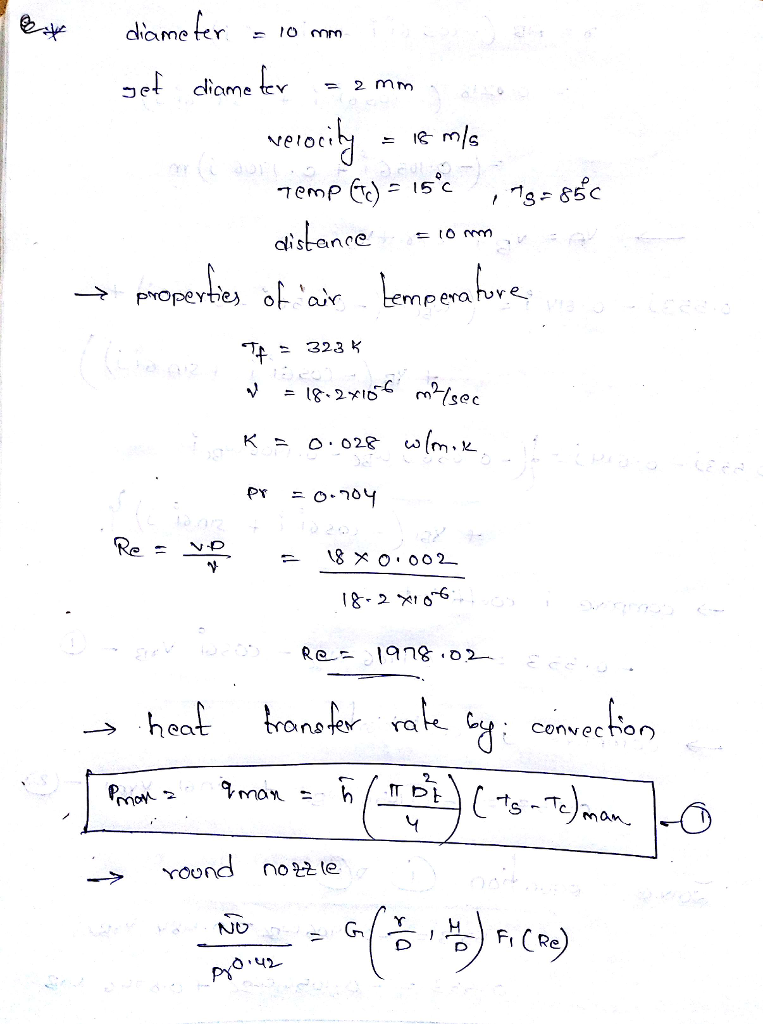 diameter = 10 mm
jet diameter = 2 mm
velocity = 18 m/s
Temp (Tc) = 15°C , Ts = 85°C
distance = 10 mm
→ properties of air temperature
Tf = 323 K
ν = 18.2×10^-6 m²/sec
K = 0.028 w/m.k
Pr = 0.704
Re = V.D/ν = 18 × 0.002 / 18.2 ×10^-6
Re = 1978.02
→ heat transfer rate by; convection
Pmax = qmax = h̄ (π Dt²/4) (Ts - Tc)max —①
→ round nozzle
N̄u/Pr^0.42 = G (r/D , H/D) F1 (Re)